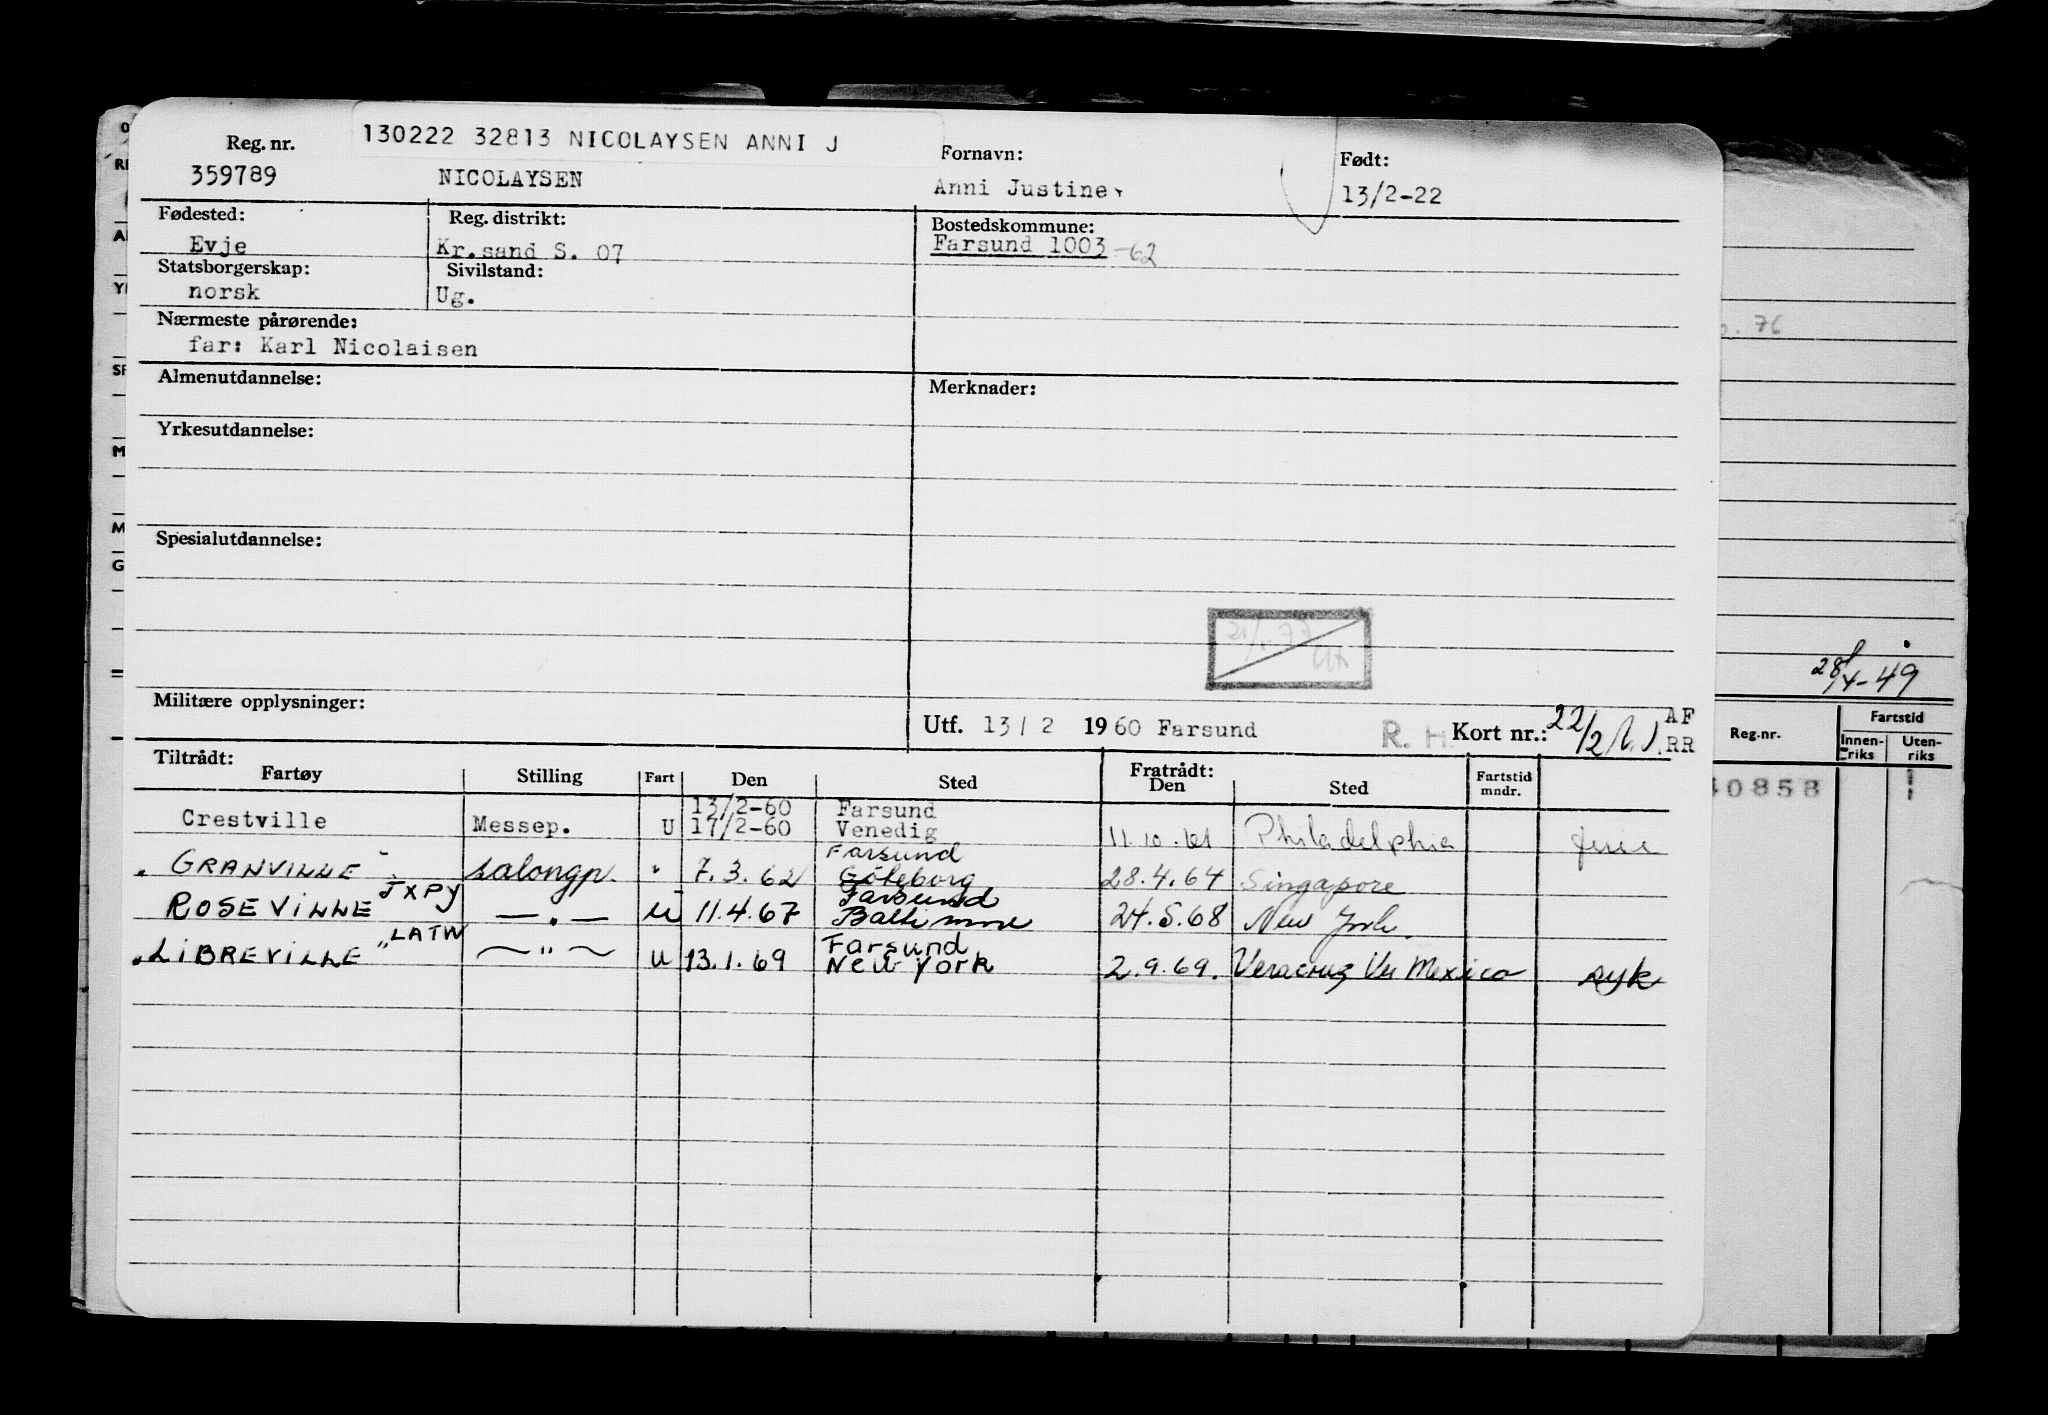 130222 32813 NICOLAYSEN ANNI J
Reg. nr. Fornavn: Født:
359789 NICOLAYSEN Anni Justine 13/2-22
Fødested: Reg. distrikt: Bostedskommune:
Evje Kr.sand S. 07 Farsund 1003 -62
Statsborgerskap: Sivilstand:
norsk Ug.
Nærmeste pårørende:
far: Karl Nicolaisen
Almenutdannelse: Merknader:
Yrkesutdannelse:
Spesialutdannelse:
Militære opplysninger:
Utf. 13/2 1960 Farsund R. H. Kort nr.: 22/2 AF
RR
Tiltrådt: Fratrådt:
Fartøy Stilling Fart Den Sted Den Sted Fartstid mndr.
13/2-60 Farsund
Crestville Messep. U 17/2-60 Venedig 11.10.61 Philadelphia ferie
Farsund
"GRANVILLE" salongp. " 7.3.62 Göteborg 28.4.64 Singapore
JXPY Farsund
ROSEVILLE — " — U 11.4.67 Baltimore 24.5.68 New York.
LATW Farsund
"LIBREVILLE" — " — U 13.1.69 New York 2.9.69. Veracruz Ver Mexico syk
. 76
28/X-49
Reg.nr. Fartstid
Innenriks Utenriks
40858